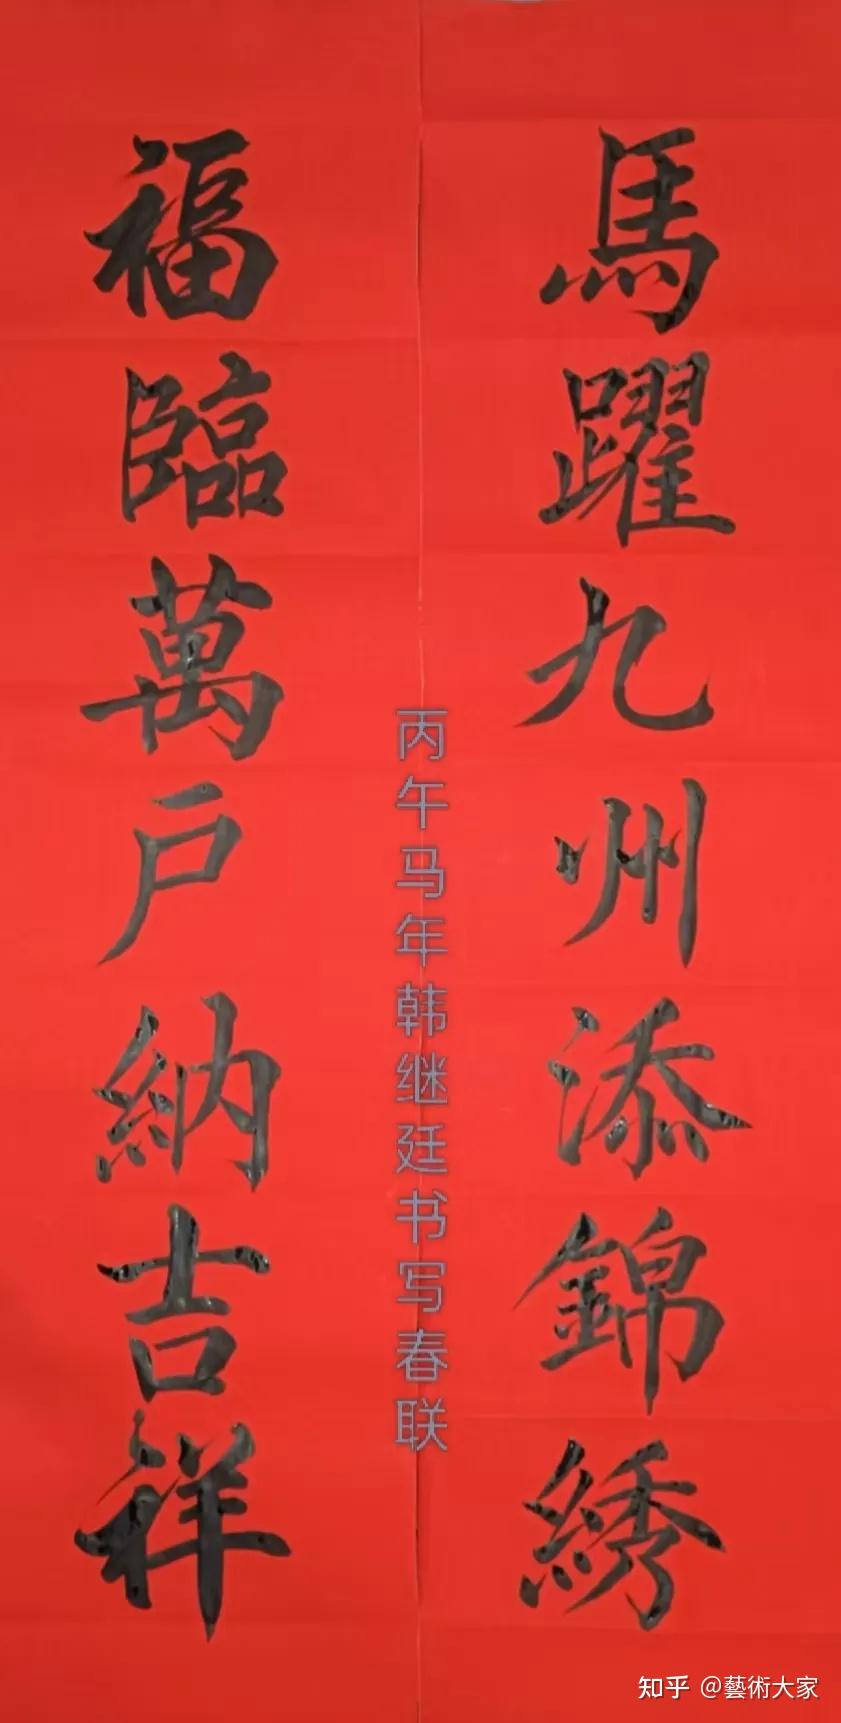 馬躍九州添錦綉
福臨萬戸納吉祥
丙午马年韩继廷书写春联
知乎 @藝術大家